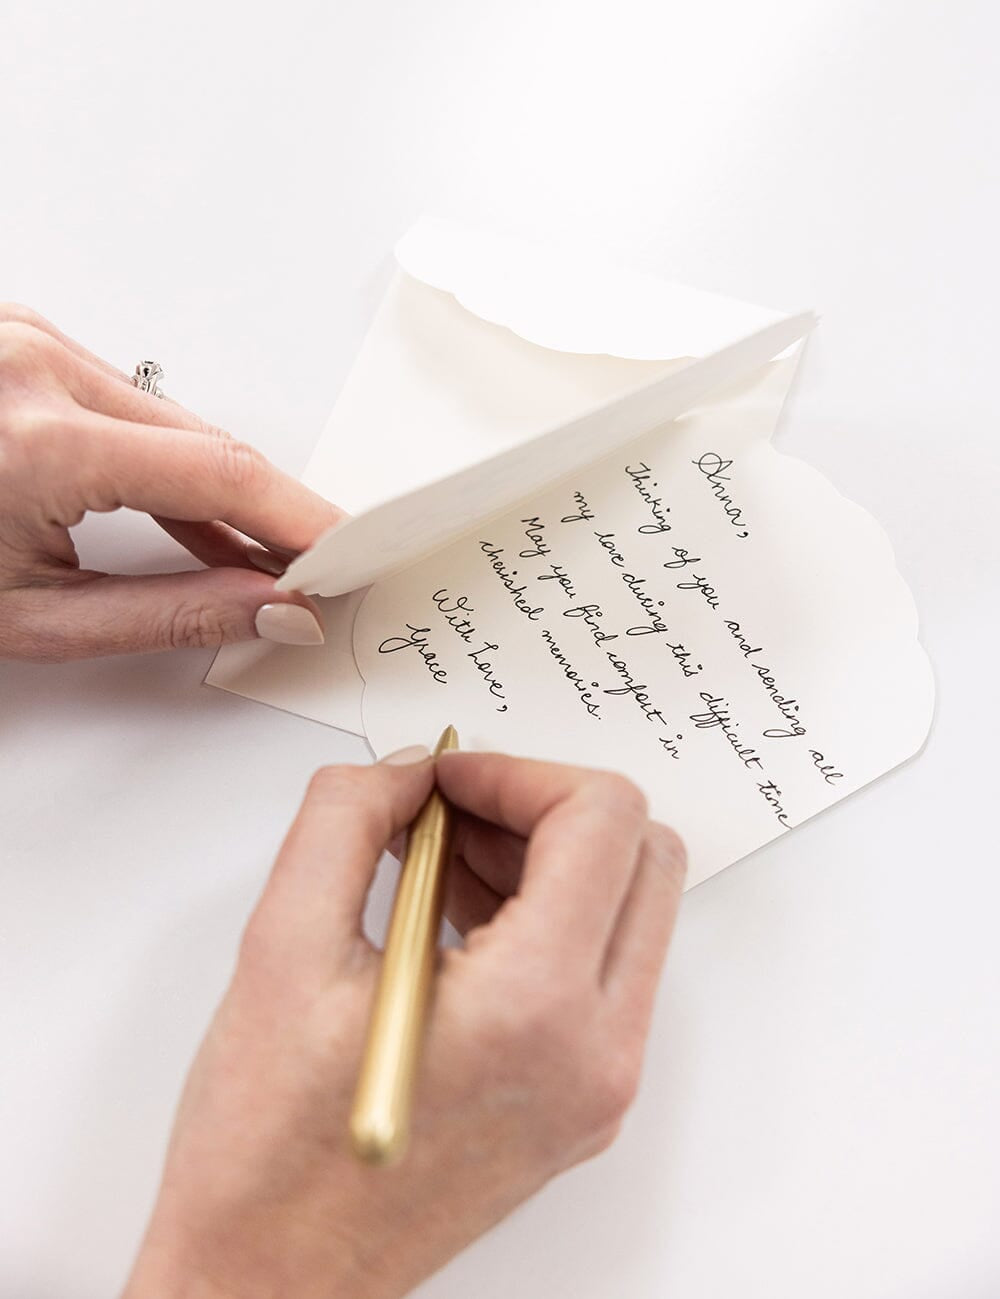 Anna,
Thinking of you and sending all
my love during this difficult time
May you find comfort in
cherished memories.
With Love,
Grace